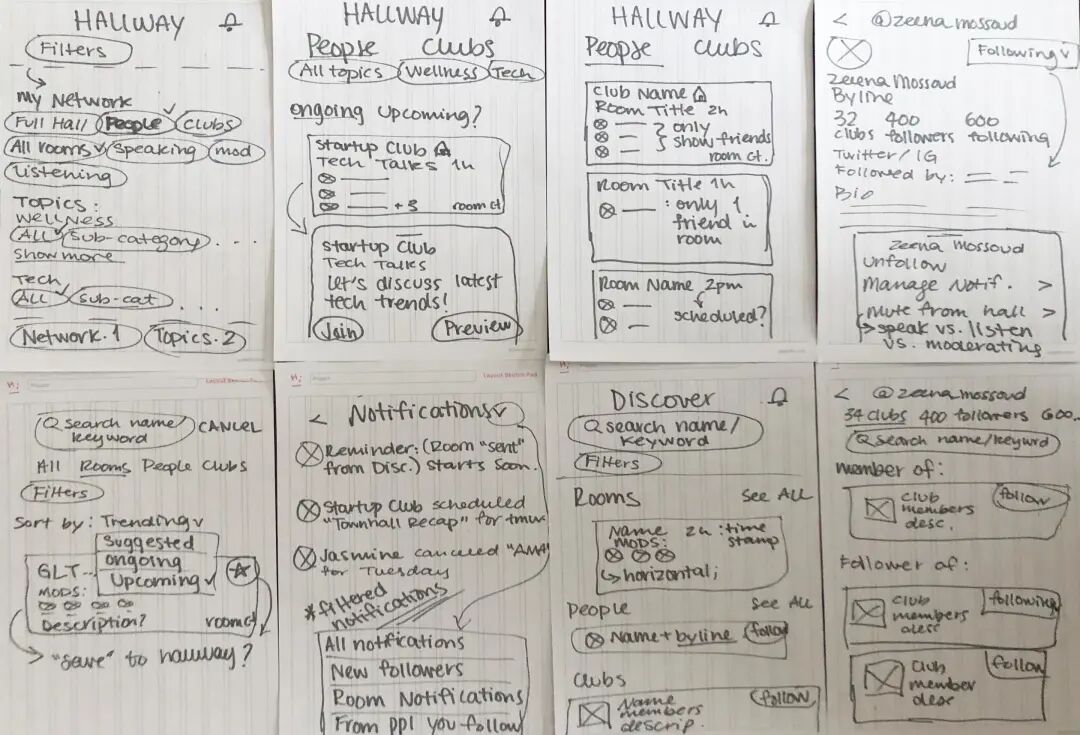 HALLWAY
Filters
my Network
Full Hall People Clubs
All rooms Speaking mod
Listening
Topics:
Wellness
All sub-category ....
show more
Tech
All sub-cat ...
Network.1 Topics.2
HALLWAY
People Clubs
All topics Wellness Tech
ongoing upcoming?
Startup Club
Tech Talks 1h
+3 room ct
startup club
Tech Talks
Let's discuss latest
tech trends!
Join Preview
HALLWAY
People Clubs
Club Name
Room Title 2h
only
show friends
room ct.
Room Title 1h
: only 1
friend in
room
Room Name 2pm
scheduled?
< @zeena mossoud
Following v
Zeena Mossoud
Byline
32 400 600
clubs followers following
Twitter/IG
Followed by:
Bio
Zeena Mossoud
unfollow
Manage Notif. >
Mute from hall >
speak vs. listen
vs. moderating
Search name/
keyword CANCEL
All Rooms People Clubs
Filters
Sort by: Trending v
Suggested
ongoing
Upcoming
GLT...
MODS:
Description? room ct
"save" to hallway?
< Notifications v
Reminder: (Room "sent"
from Disc.) Starts soon.
Startup Club scheduled
"Townhall Recap" for tmw.
Jasmine canceled "AMA"
for Tuesday
*filtered
notifications
All notfications
New followers
Room Notifications
From ppl you follow
Discover
Search name/
keyword
Filters
Rooms See All
Name 2h :time
stamp
MODS:
horizontal;
People See All
Name + byline follow
Clubs
Name
members
descrip.
follow
< @zeena mossoud
34 clubs 400 followers 600..
Search name/keywrd
member of:
club
members
desc.
follow
Follower of:
club
members
desc
following
Club
member
desc
follow